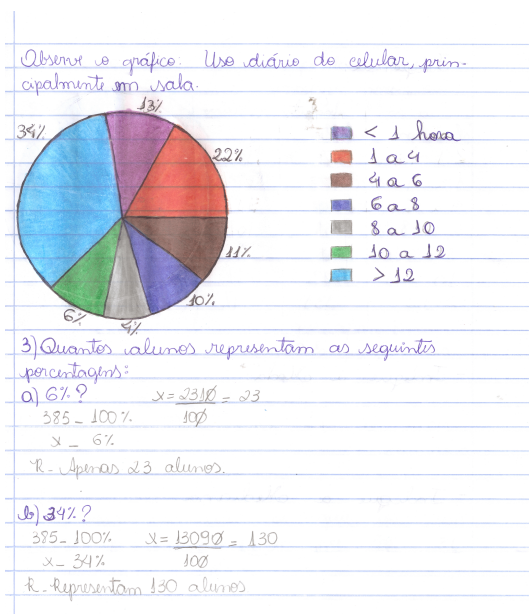 Observe o gráfico: Uso diário do celular, prin-
cipalmente em sala.
13%
34%
22%
11%
10%
4%
6%
< 1 hora
1 a 4
4 a 6
6 a 8
8 a 10
10 a 12
> 12
3) Quantos alunos representam as seguintes
porcentagens:
a) 6%? x = 2310/100 = 23
385 - 100%
x - 6%
R- Apenas 23 alunos.
b) 34%?
385 - 100% x = 13090/100 = 130
x - 34%
R- Representam 130 alunos